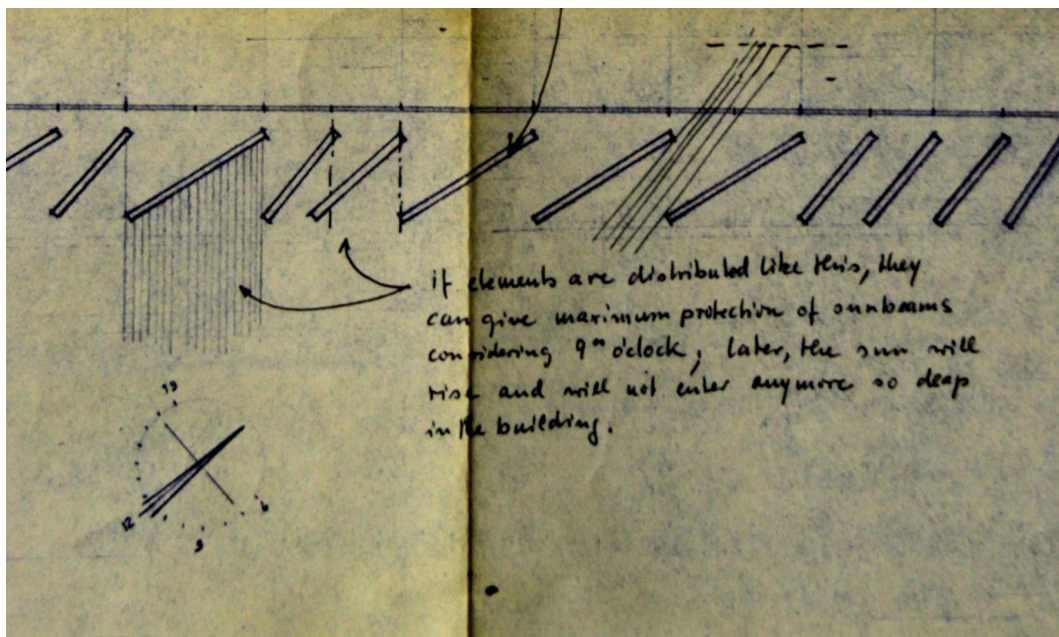 if elements are distributed like this, they
can give maximum protection of sunbeams
considering 9°° o'clock; later, the sun will
rise and will not enter anymore so deap
in the building.
12
9
6